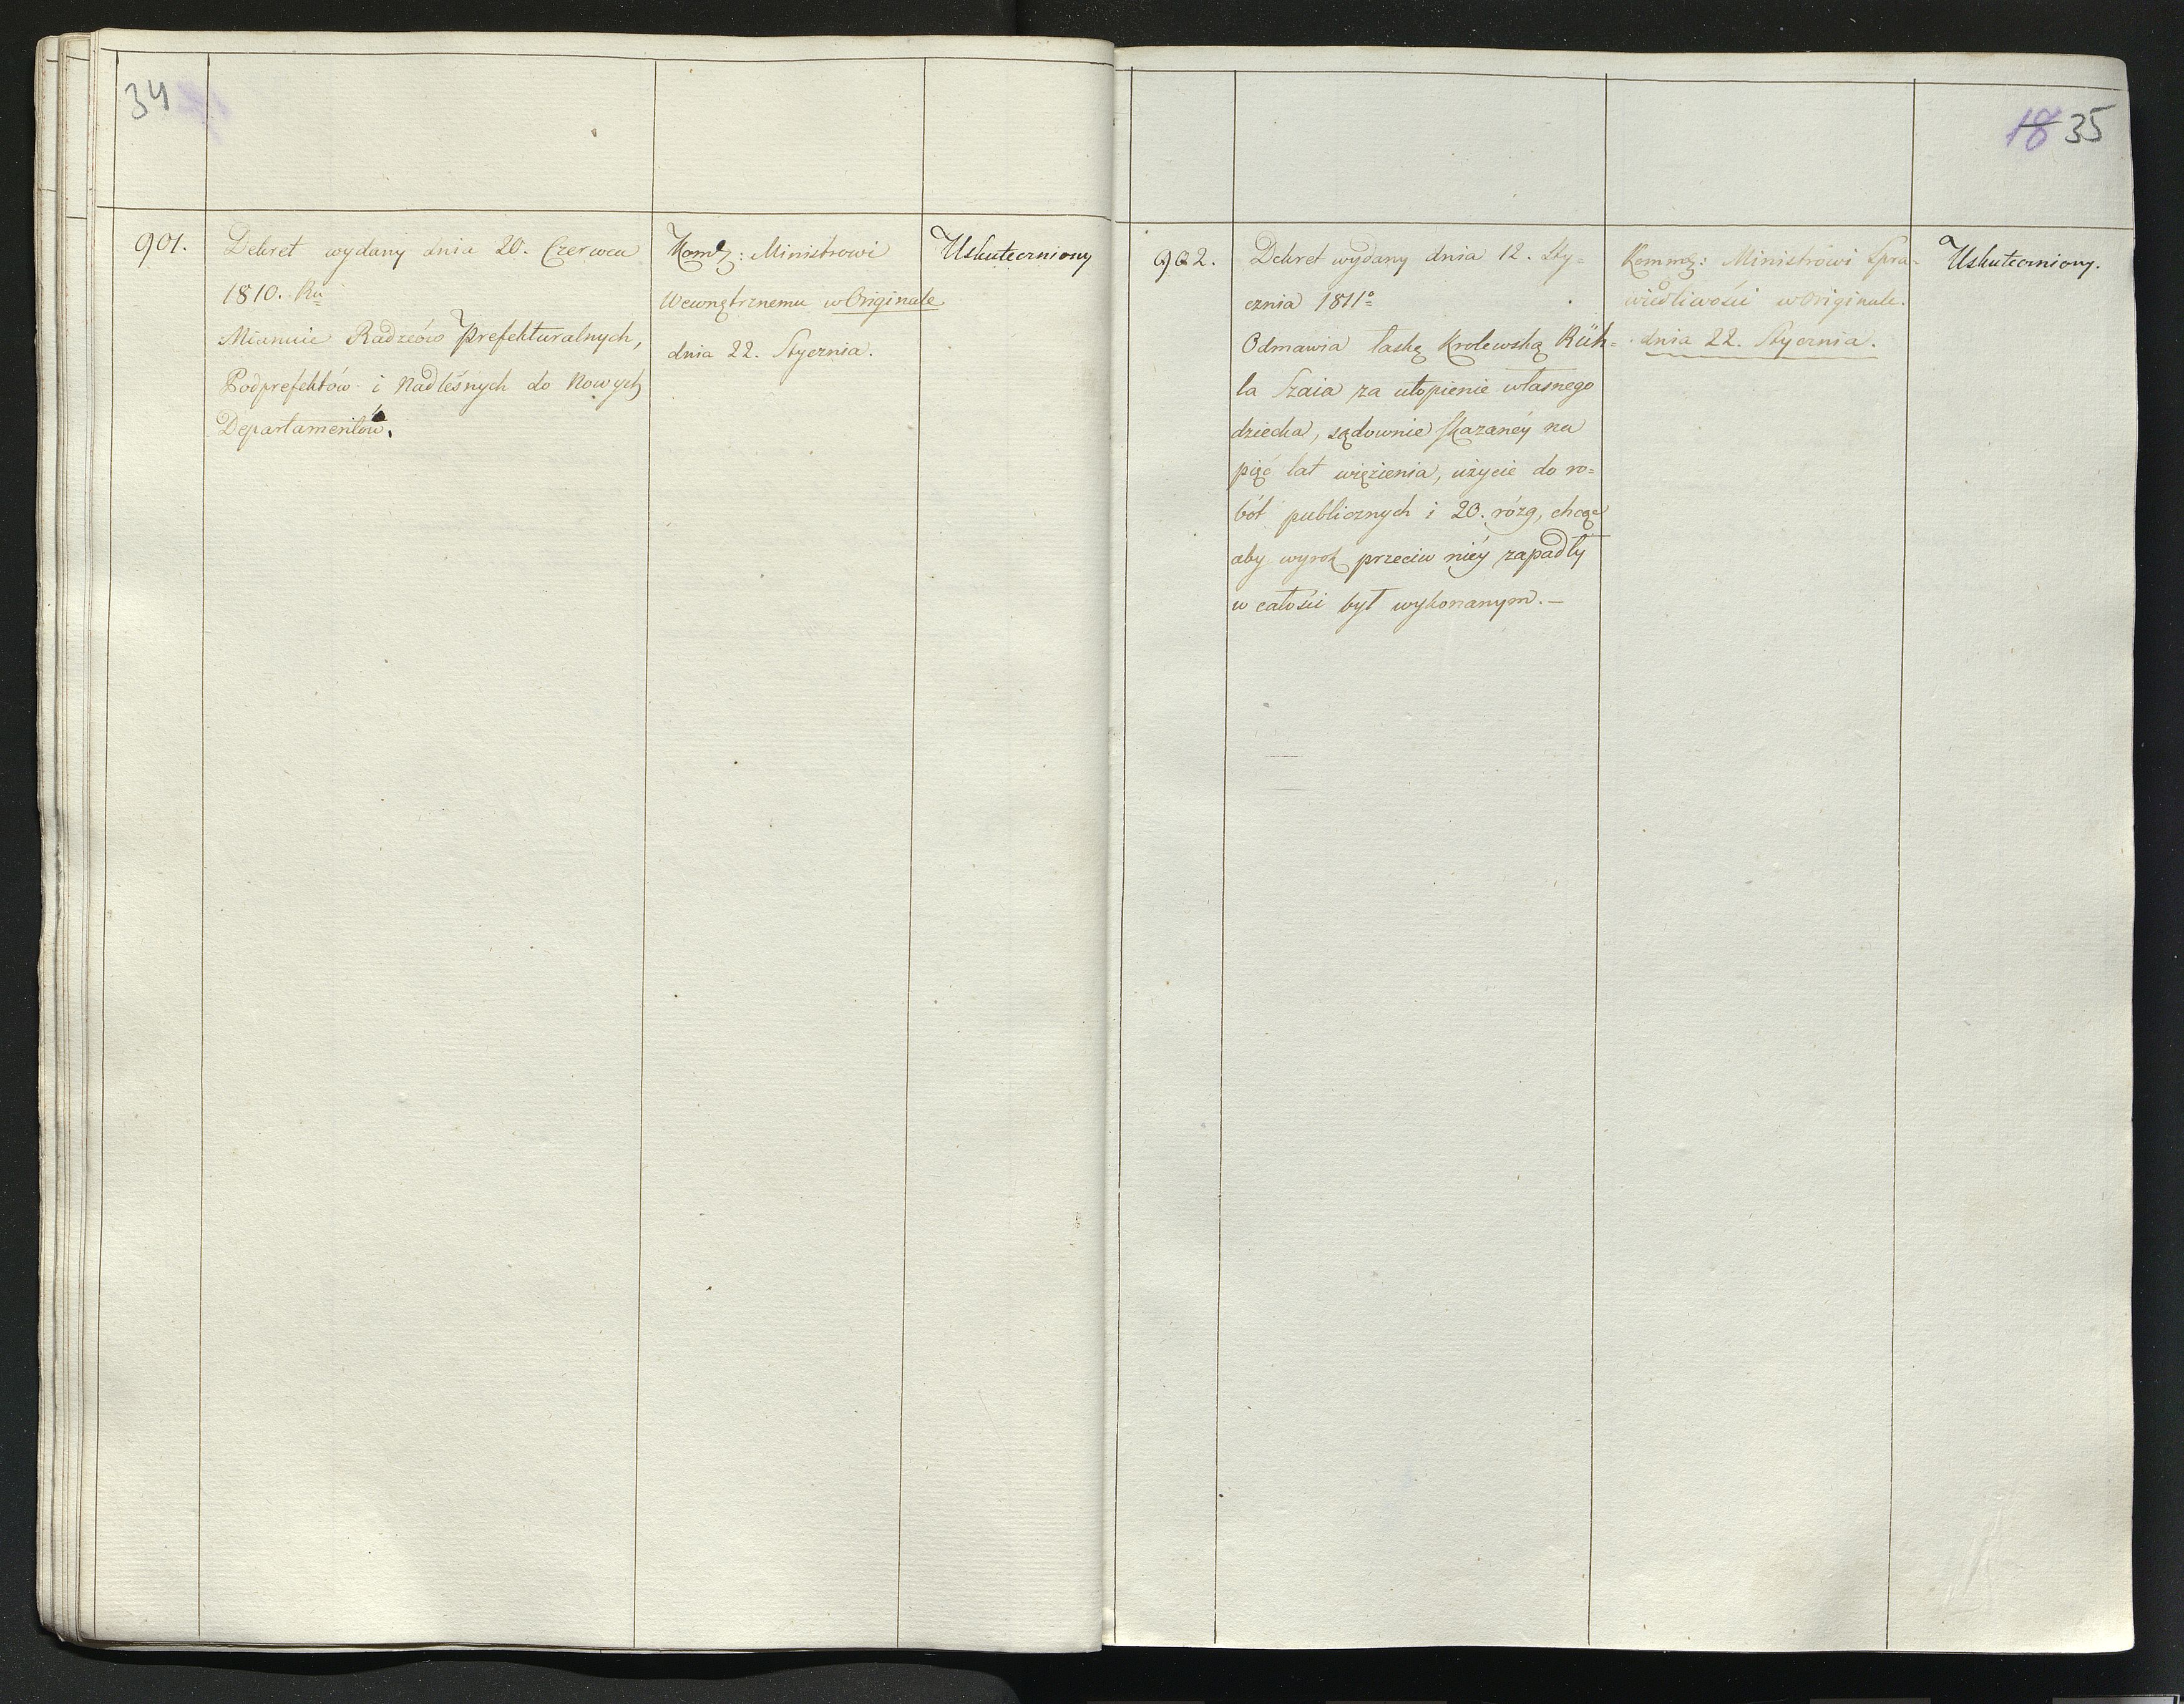 34
901.
Dekret wydany dnia 20. Czerwca
1810. Ru
Mianuie Radzców Prefekturalnych,
Podprefektów i Nadleśnych do Nowych
Departamentów.
Ministrowi
Wewnętrznemu w Originale
dnia 22. Stycznia.
Uskuteczniony
18 35
902.
Dekret wydany dnia 12. Sty=
cznia 1811o
Odmawia łaskę Krolewską Rüh=
la Szaia za utopienie własnego
dziecka, sądownie skazanéy na
pięć lat więzienia, użycie do ro=
bót publicznych i 20. rózg, chcąc
aby wyrok przeciw niéy zapadły
w całości był wykonanym. —
Ministrowi Spra=
wiedliwości w Originale.
dnia 22. Stycznia.
Uskuteczniony.